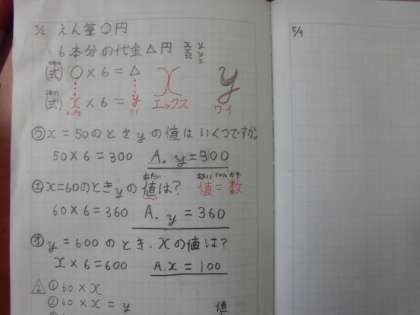 えん筆〇円
6本分の代金△円
(式) 〇×6=△
(式) x×6=y
x エックス
y ワイ
x=50のときyの値はいくつですか。
50×6=300 A. y=300
②x=60のときyの値は? 値=数
60×6=360 A. y=360
y=600のとき、xの値は?
x×6=600 A.x=100
△2 ①60×x
②60×x=y
5/9